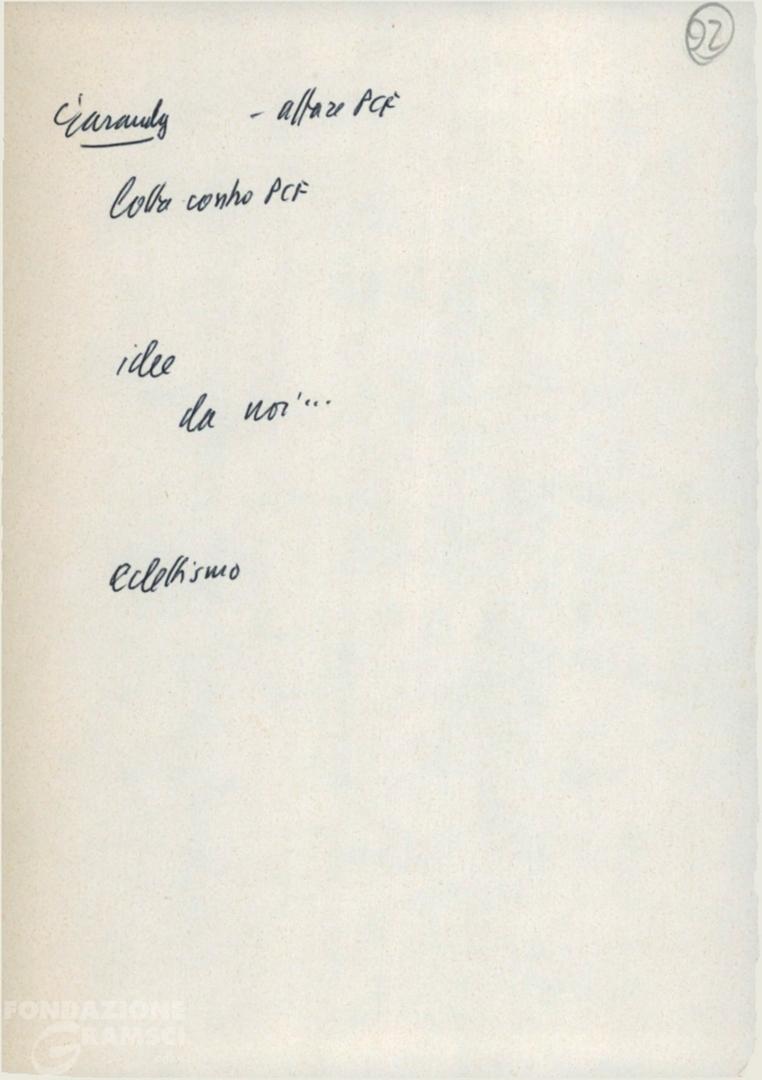 92
Garaudy - affare PCF
lotta contro PCF
idee
da noi...
eclettismo
FONDAZIONE
GRAMSCI